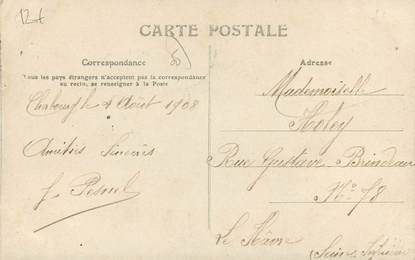 CARTE POSTALE
Correspondance
Tous les pays étrangers n'acceptent pas la correspondance
au recto, se renseigner à la Poste
4 Août 1908
Amitiés Sincères
J. Pesnel
Adresse
Mademoiselle
Rue Gustave Brindeau
No 78
Le Hâvre